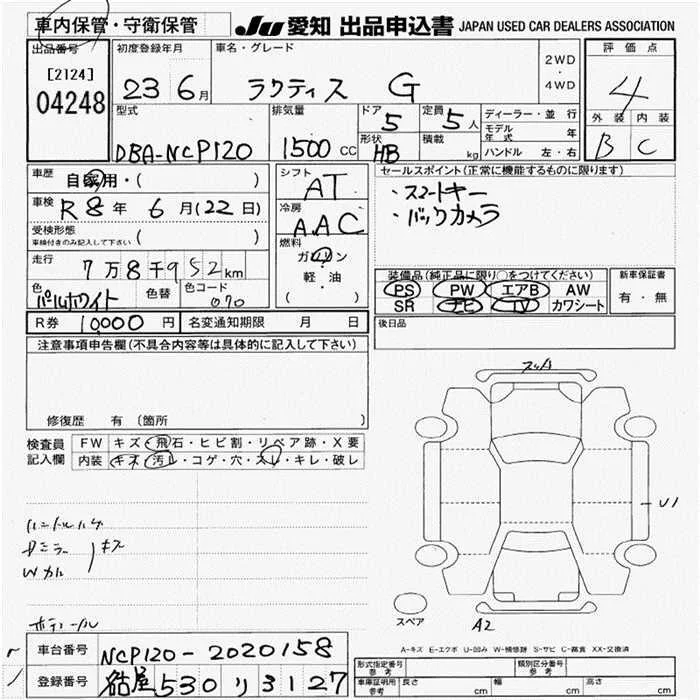 車内保管・守衛保管
JU 愛知 出品申込書 JAPAN USED CAR DEALERS ASSOCIATION
出品番号
[2124]
04248
初度登録年月
23 6月
車名・グレード
ラクティス G
2WD
・
4WD
評価点
4
外装 内装
B C
型式
DBA-NCP120
排気量
1500 CC
ドア
5
形状
HB
定員
5人
積載
kg
ディーラー・並行
モデル年式 年
ハンドル 左・右
車歴
自家用・( )
車検
R8年 6月(22日)
受検形態
車検付きのみ記入して下さい ( )
走行
7万8千952km
色
パールホワイト
色替
色コード
070
シフト
AT
冷房
AAC
燃料
ガソリン
・
軽・油
・
( )
セールスポイント(正常に機能するものに限ります)
・スマートキー
・バックカメラ
装備品(純正品に限り○をつけてください)
PS PW エアB AW
SR ナビ TV カワシート
新車保証書
有・無
R券 10000円
名変通知期限 月 日
後日品
注意事項申告欄(不具合内容等は具体的に記入して下さい)
修復歴 有 〔箇所 〕
検査員
記入欄
FW キズ・飛石・ヒビ割・リペア跡・X要
内装 キズ・汚レ・コゲ・穴・スレ・キレ・破レ
ハンドルハゲ
キズ
U1
A2
スペア
A-キズ E-エクボ U-凹み W-補修跡 S-サビ C-腐食 XX-交換済
車台番号
NCP120-2020158
登録番号
名古屋530リ3127
形式指定番号
参考
類別区分番号
参考
車庫証明用
参考
長さ cm
幅 cm
高さ cm